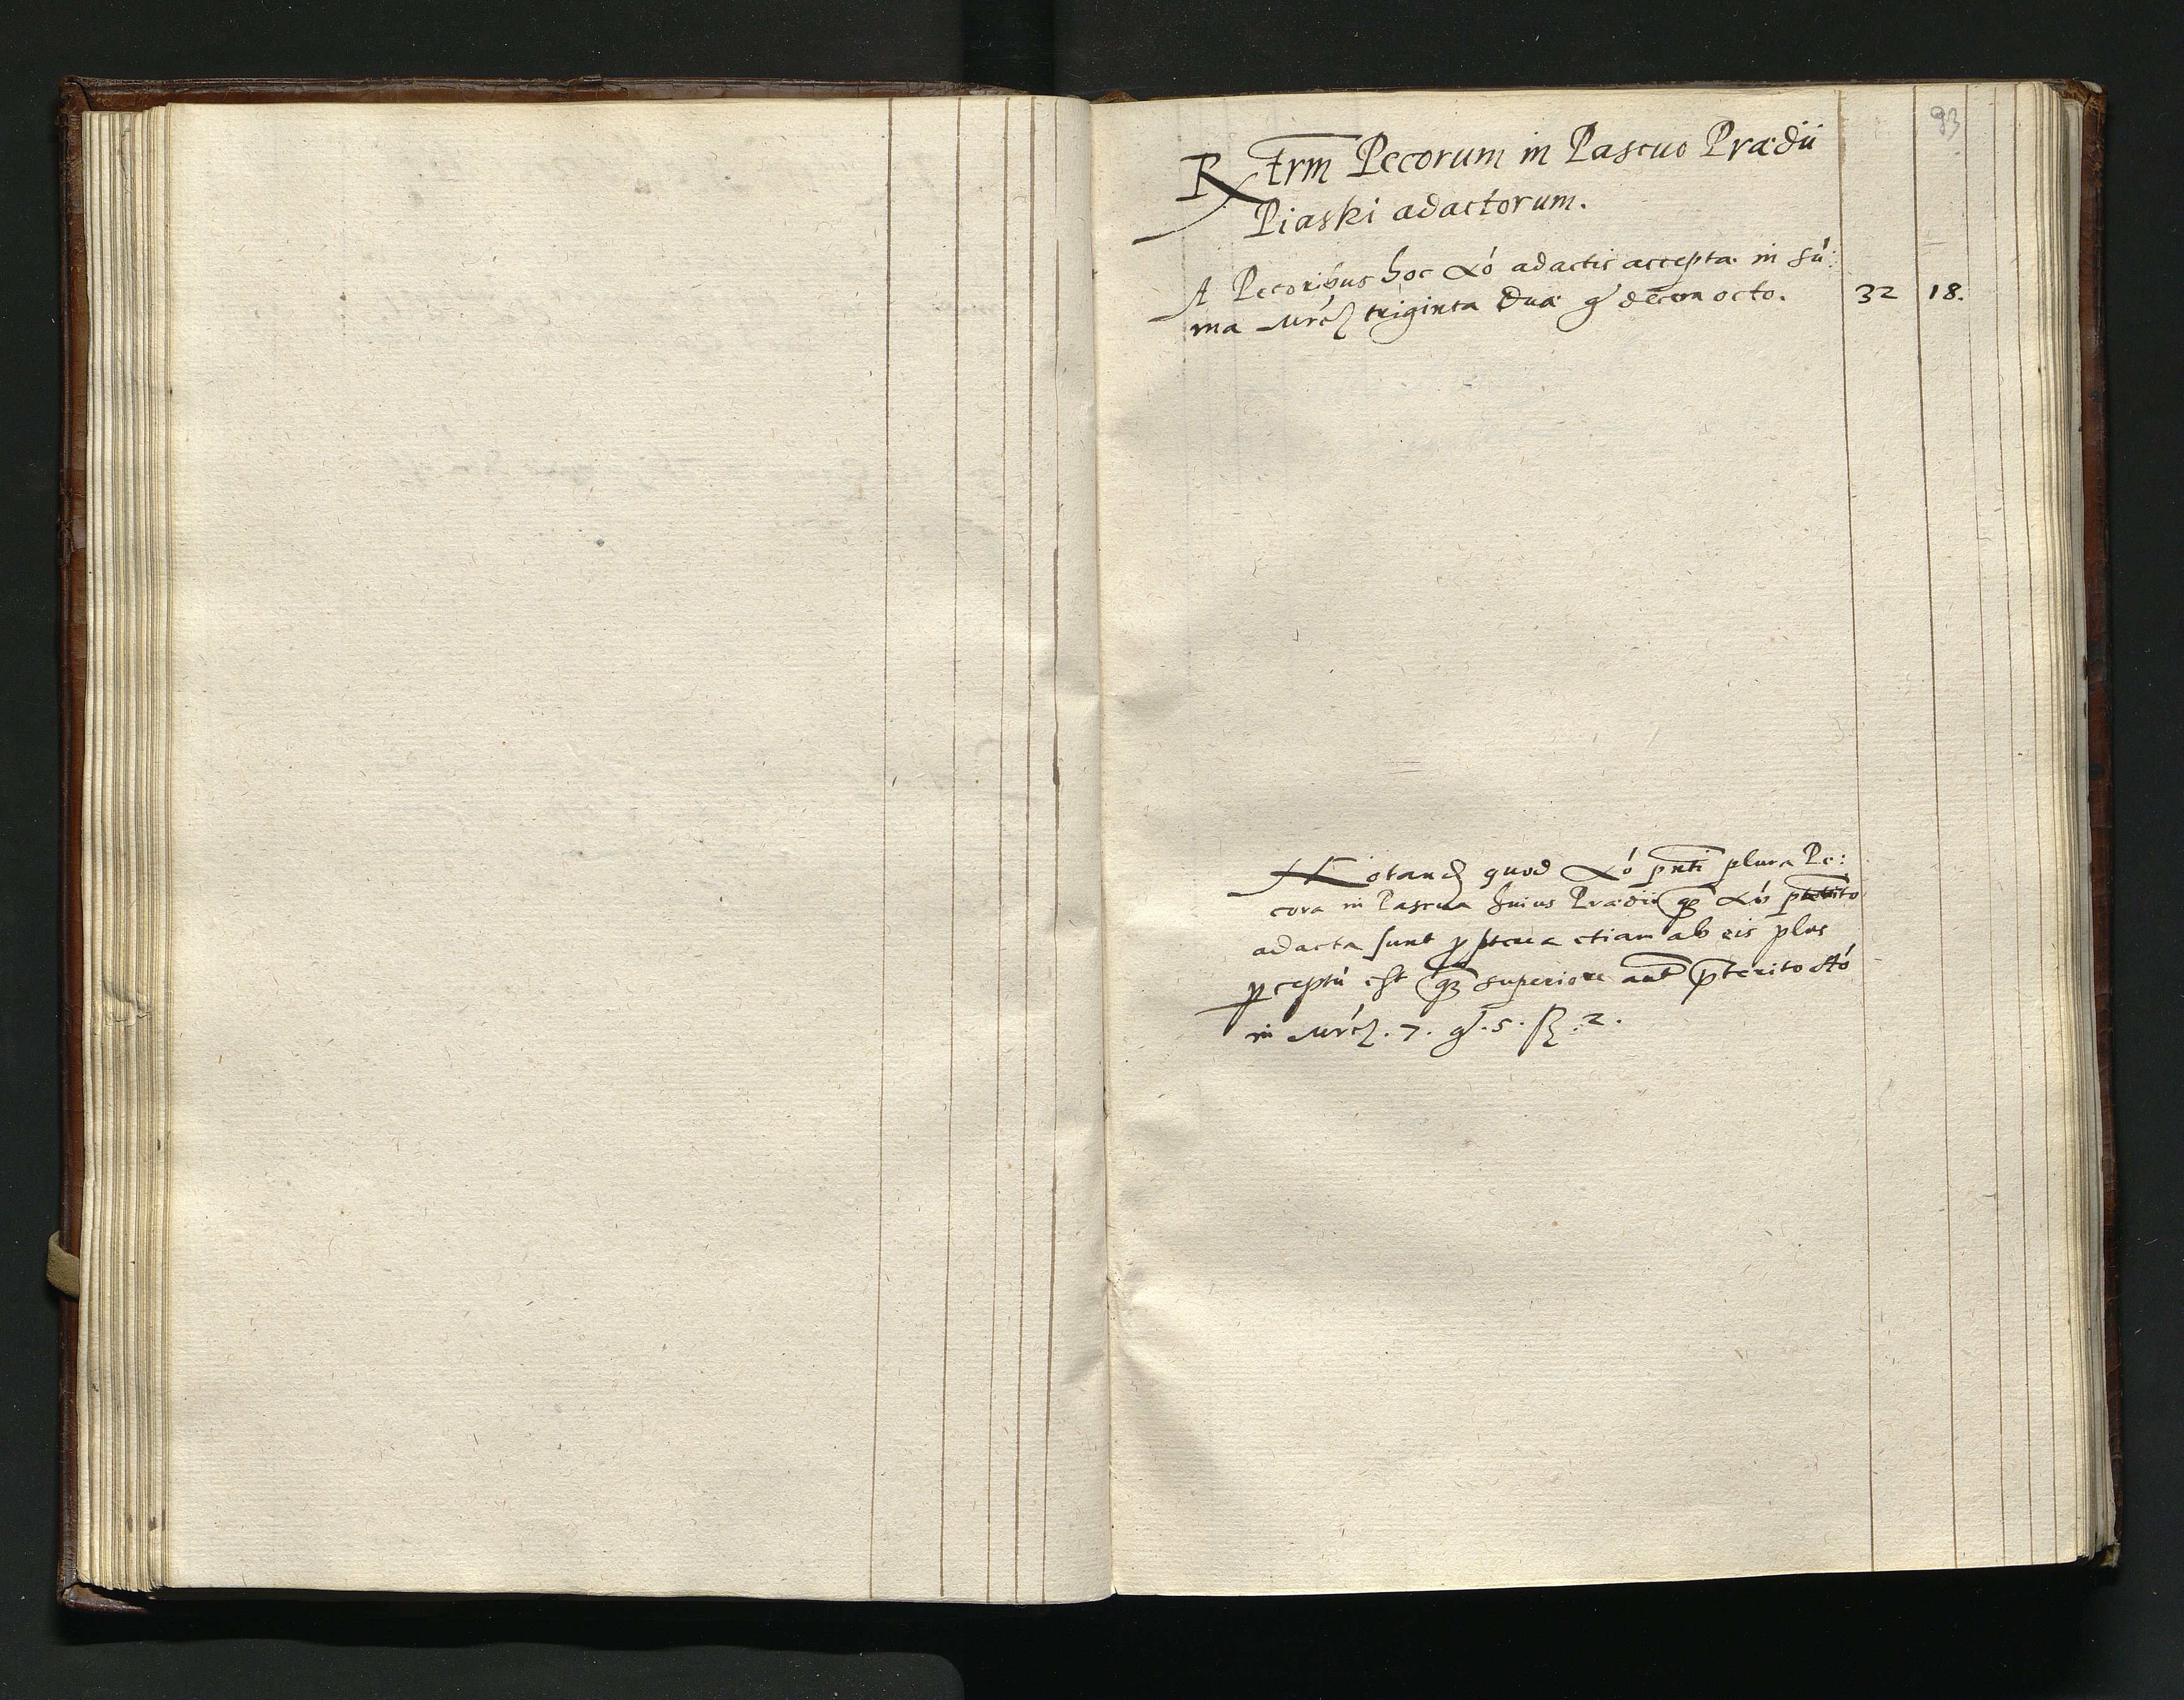 93
Rtrm Pecorum in Pascuo Prædii
Piaski adactorum.
A Pecoribus hoc Aó adactis accepta in sú:
ma Mrć triginta Duæ g decem octo. 32 18.
Notand quod Aó pnti plura Pe:
cora in Pascua huius Prædii Aó
adacta sunt etiam ab eis plus
p ceptú est superiore ant pterito Aó
in Mrć. 7. g. 5. ß. 2.